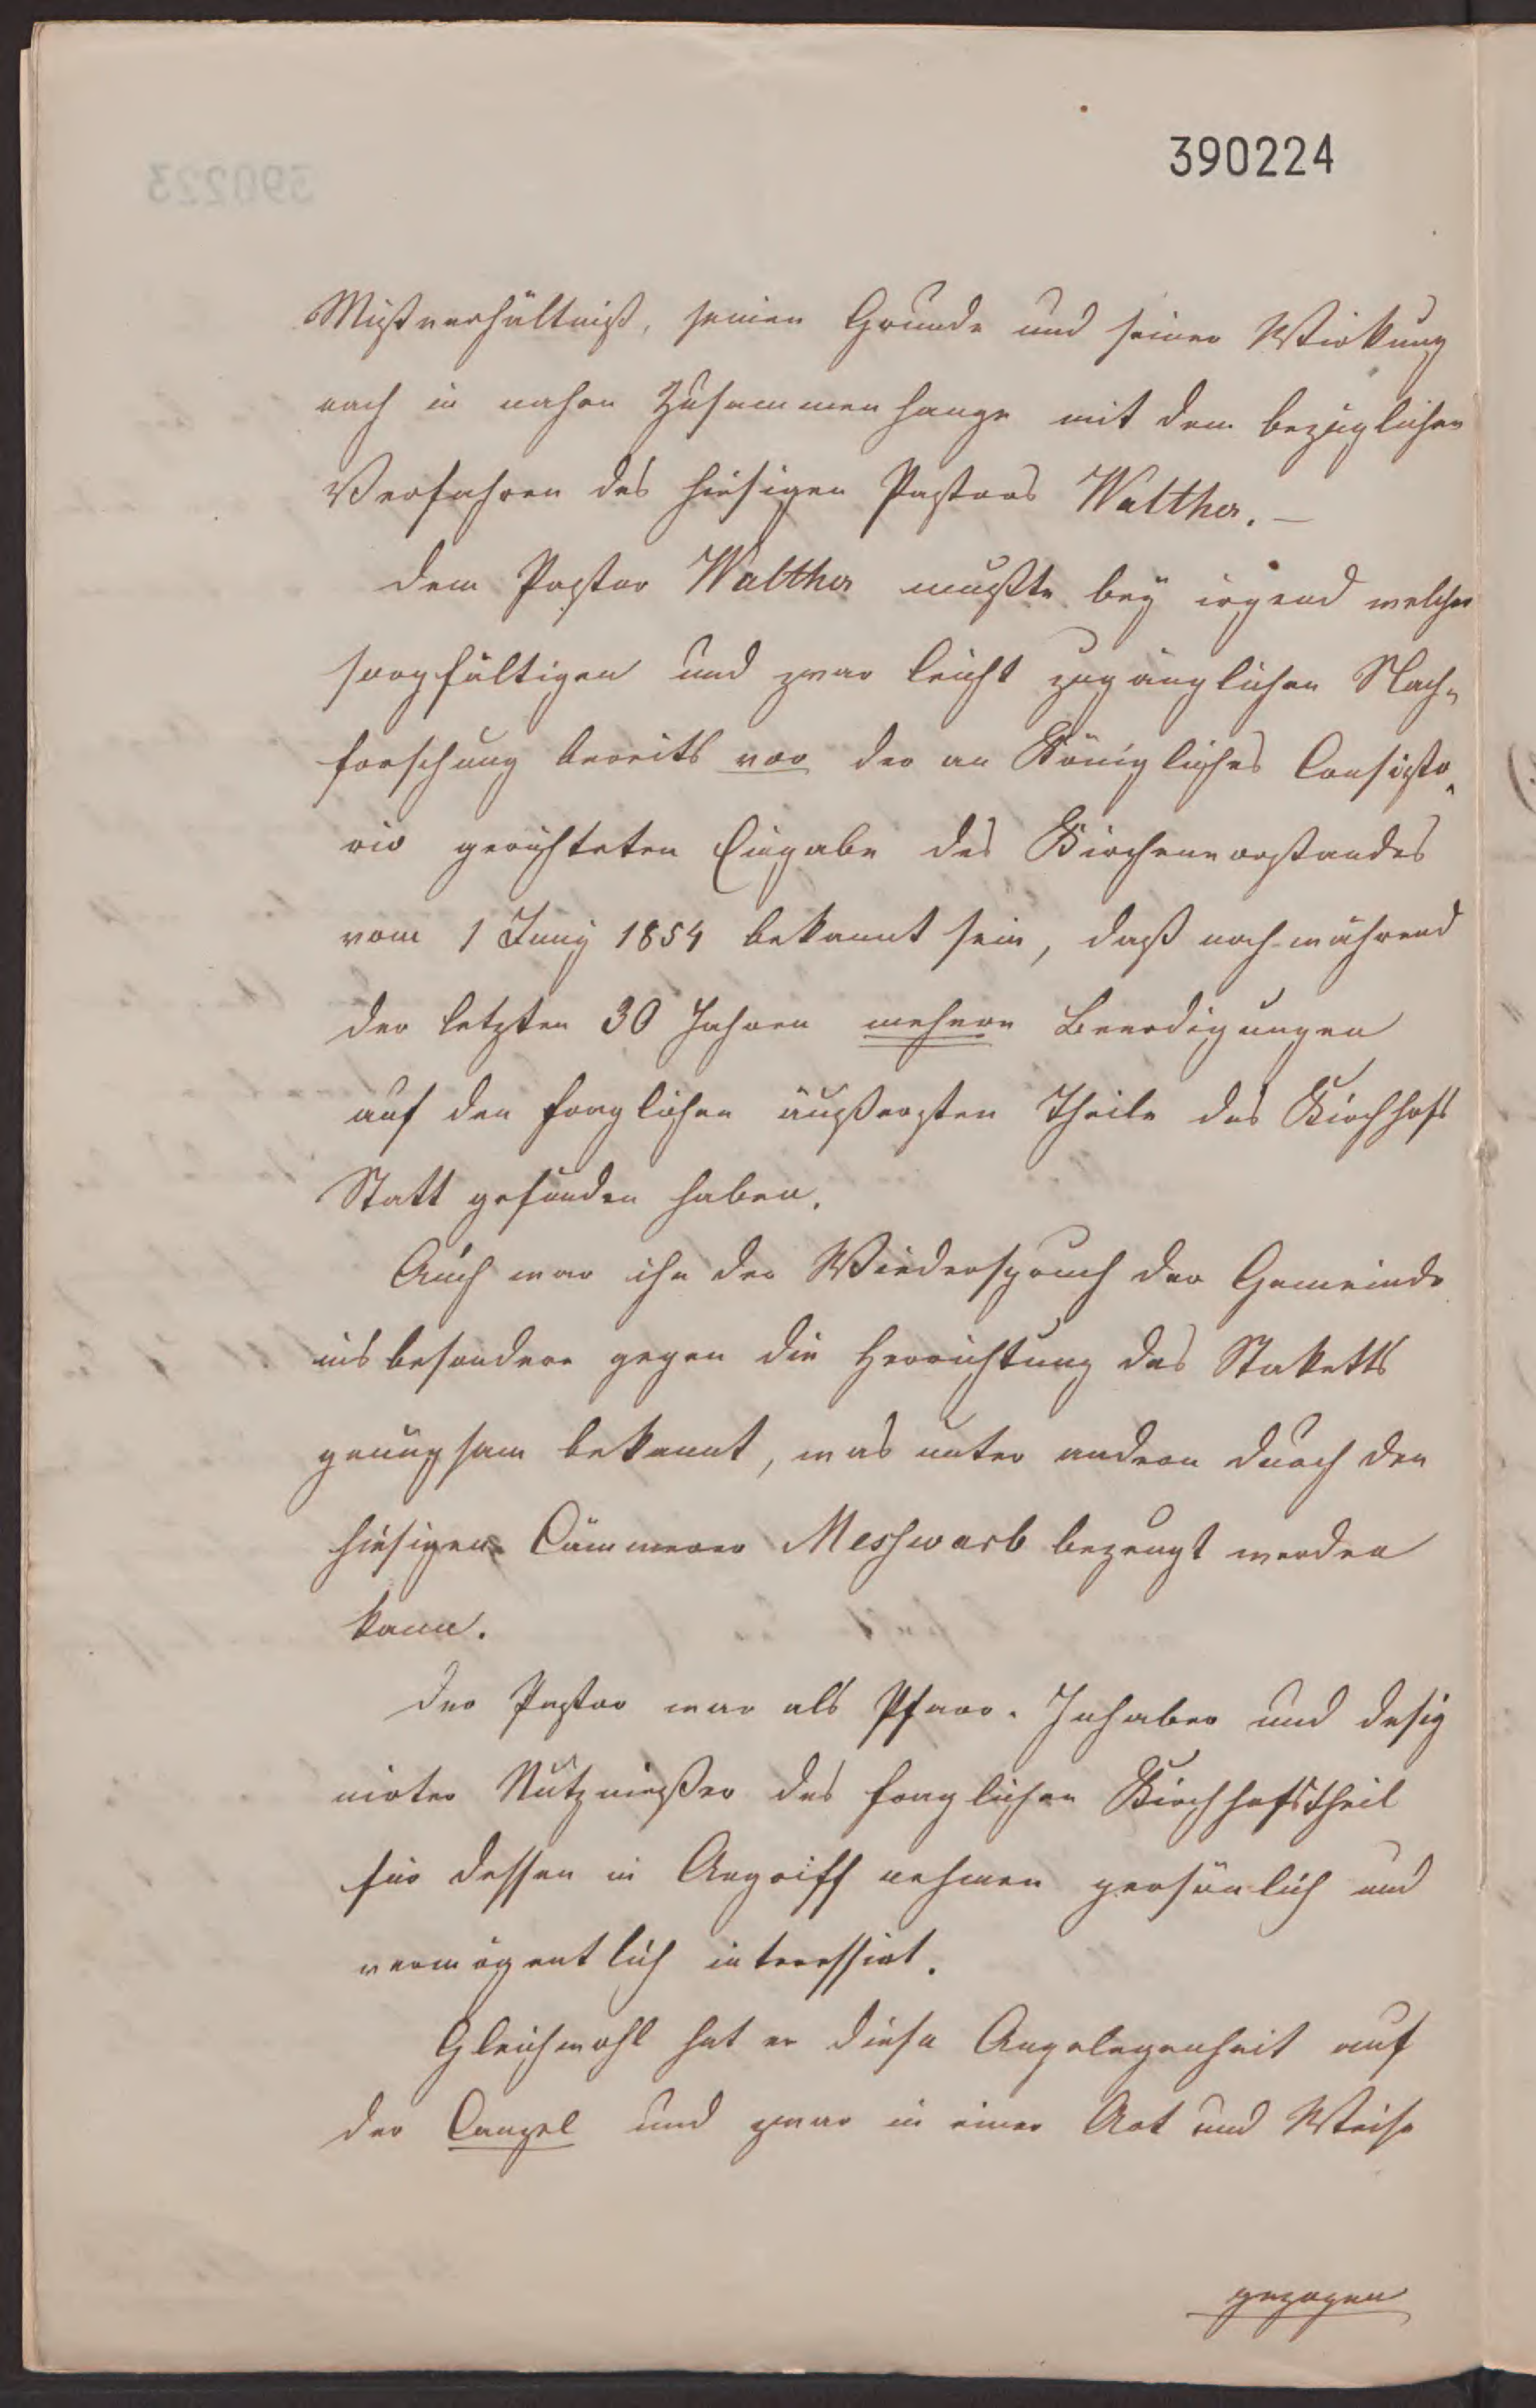 390224
390223
Mißverhältniß, seinem Grunde und seiner Wirkung
nach in nahen Zusammenhange mit dem bezüglichen
Verfahren des hiesigen Pastors Walther. –
Dem Pastor Walther mußte bey irgend welcher
sorgfältigen und zwar leicht zugänglichen Nach-
forschung bereits vor der an Königliches Consisto-
rio gerichteten Eingabe des Kirchenvorstandes
vom 1 Juny 1854 bekannt sein, daß noch während
der letzten 30 Jahren mehere Beerdigungen
auf den fraglichen äußersten Theile des Kirchhofs
Statt gefunden haben.
Auch war ihm der Wiederspruch der Gemeinde
insbesondere gegen die Herrichtung des Staketts
genugsam bekannt, was unter andern durch den
hiesigen Cämmerer Meshwarb bezeugt werden
kann.
Der Pastor war als Pfarr-Inhaber und desig
nirter Nutznießer des fraglichen Kirchhofstheil
für dessen in Angriff nehmen persönlich und
vermögentlich interessirt.
Gleichwohl hat er diese Angelegenheit auf
der Canzel und zwar in einer Art und Weise
gezogen